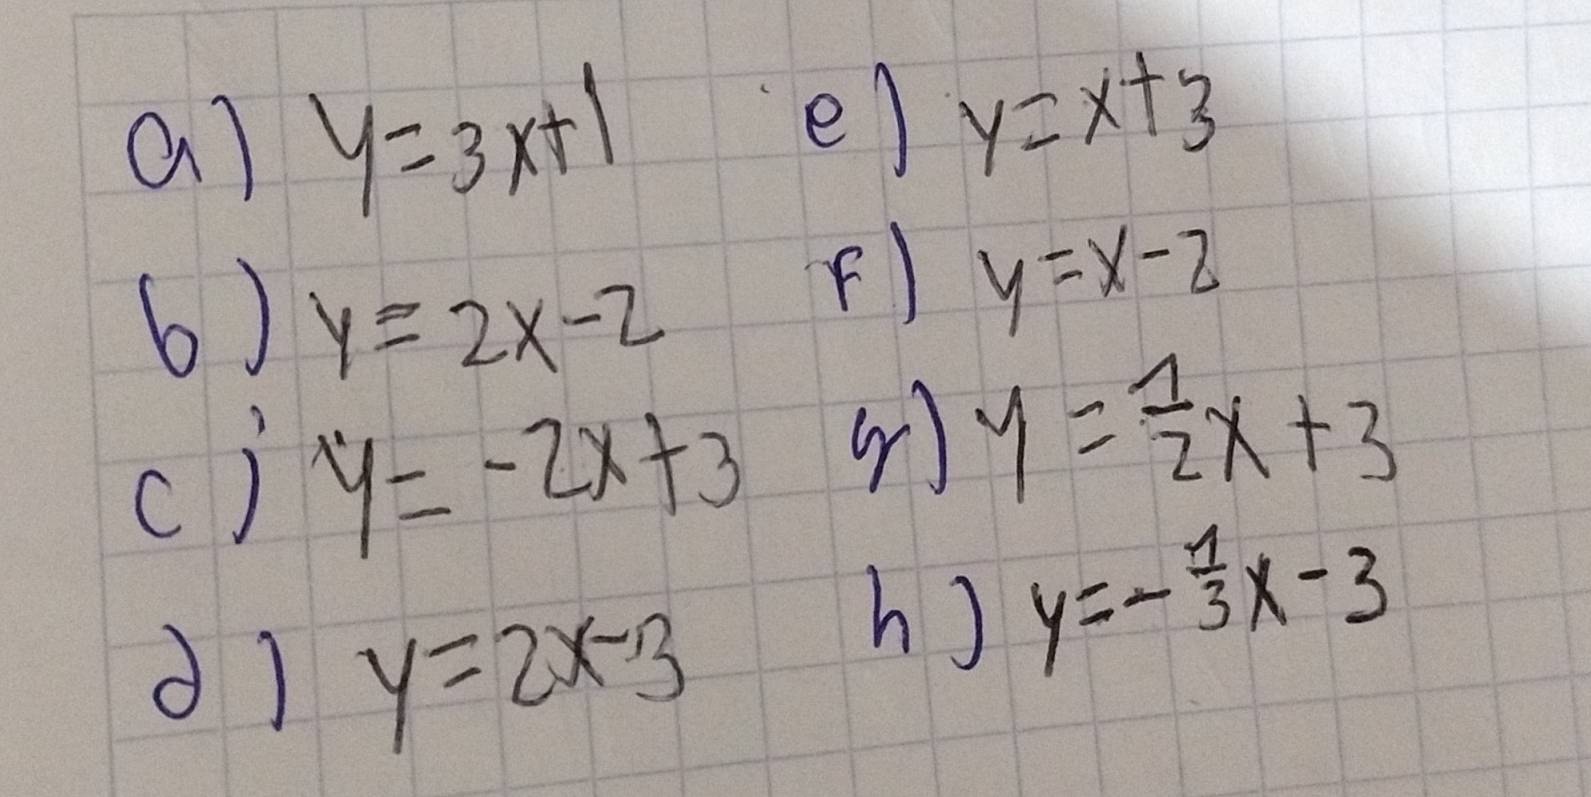 a) y=3x+1
b) y=2x-2
c) y=-2x+3
d) y=2x-3
e) y=x+3
f) y=x-2
g) y=1/2x+3
h) y=-1/3x-3